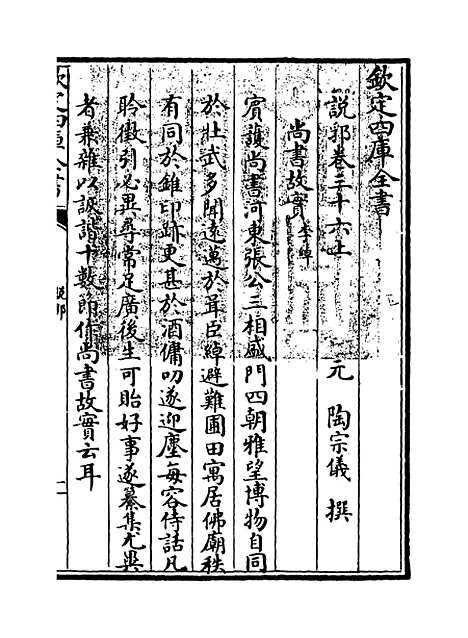 欽定四庫全書
說郛卷三十六上
元 陶宗儀 撰
尚書故實 李綽
賓護尚書河東張公三相盛門四朝雅望博物自同
於壯武多聞遠邁於胥臣綽避難圃田寓居佛廟秩
有同於錐印跡更甚於酒傭叨遂迎塵每容侍話凡
聆徵引必異尋常足廣後生可貽好事遂纂集尤異
者兼雜以詼諧十數節作尚書故實云耳
欽定四庫全書
說郛